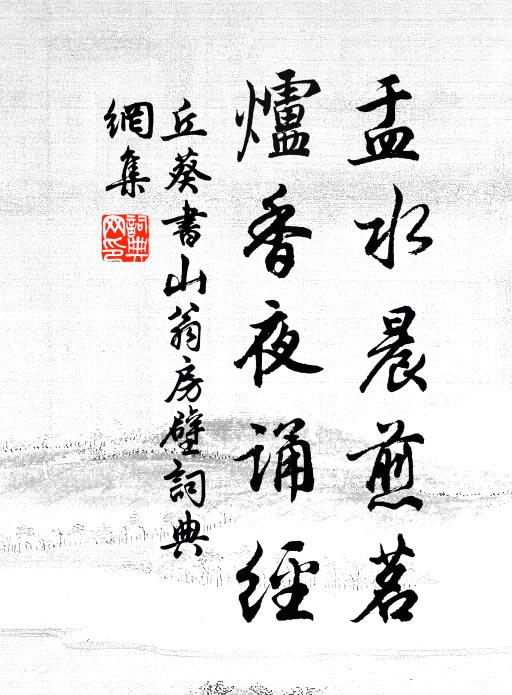 盂水晨煎茗
爐香夜誦經
丘葵書山翁房壁詞典
網集
詞典網印